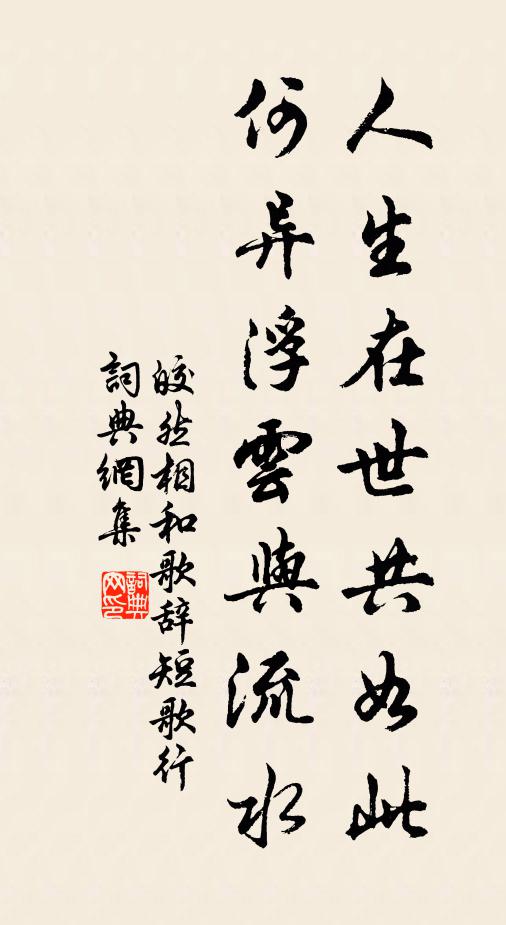 人生在世共如此
何异浮雲與流水
皎然相和歌辞短歌行
詞典網集
詞典网印